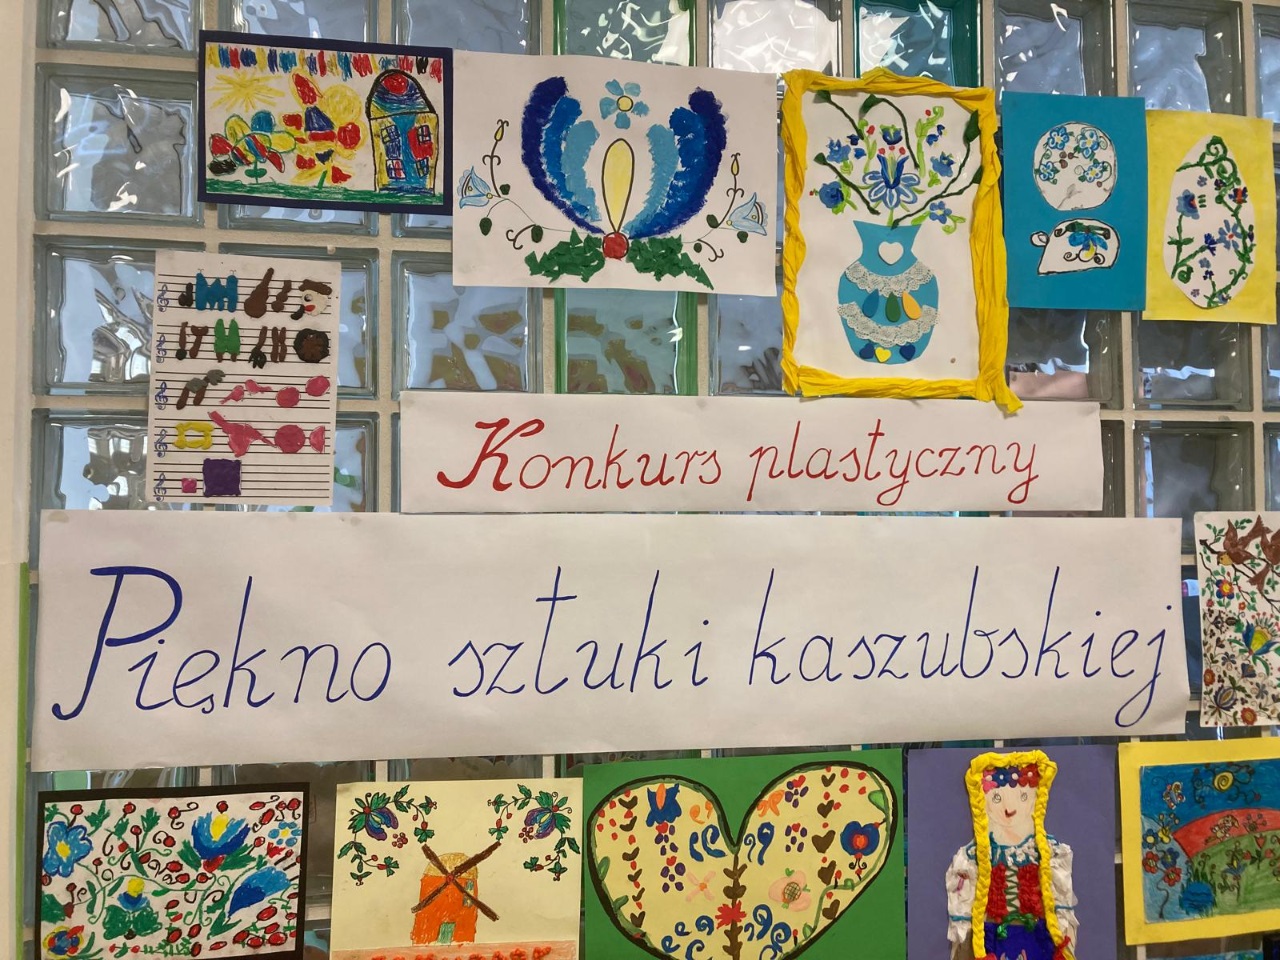 Konkurs plastyczny
Piękno sztuki kaszubskiej